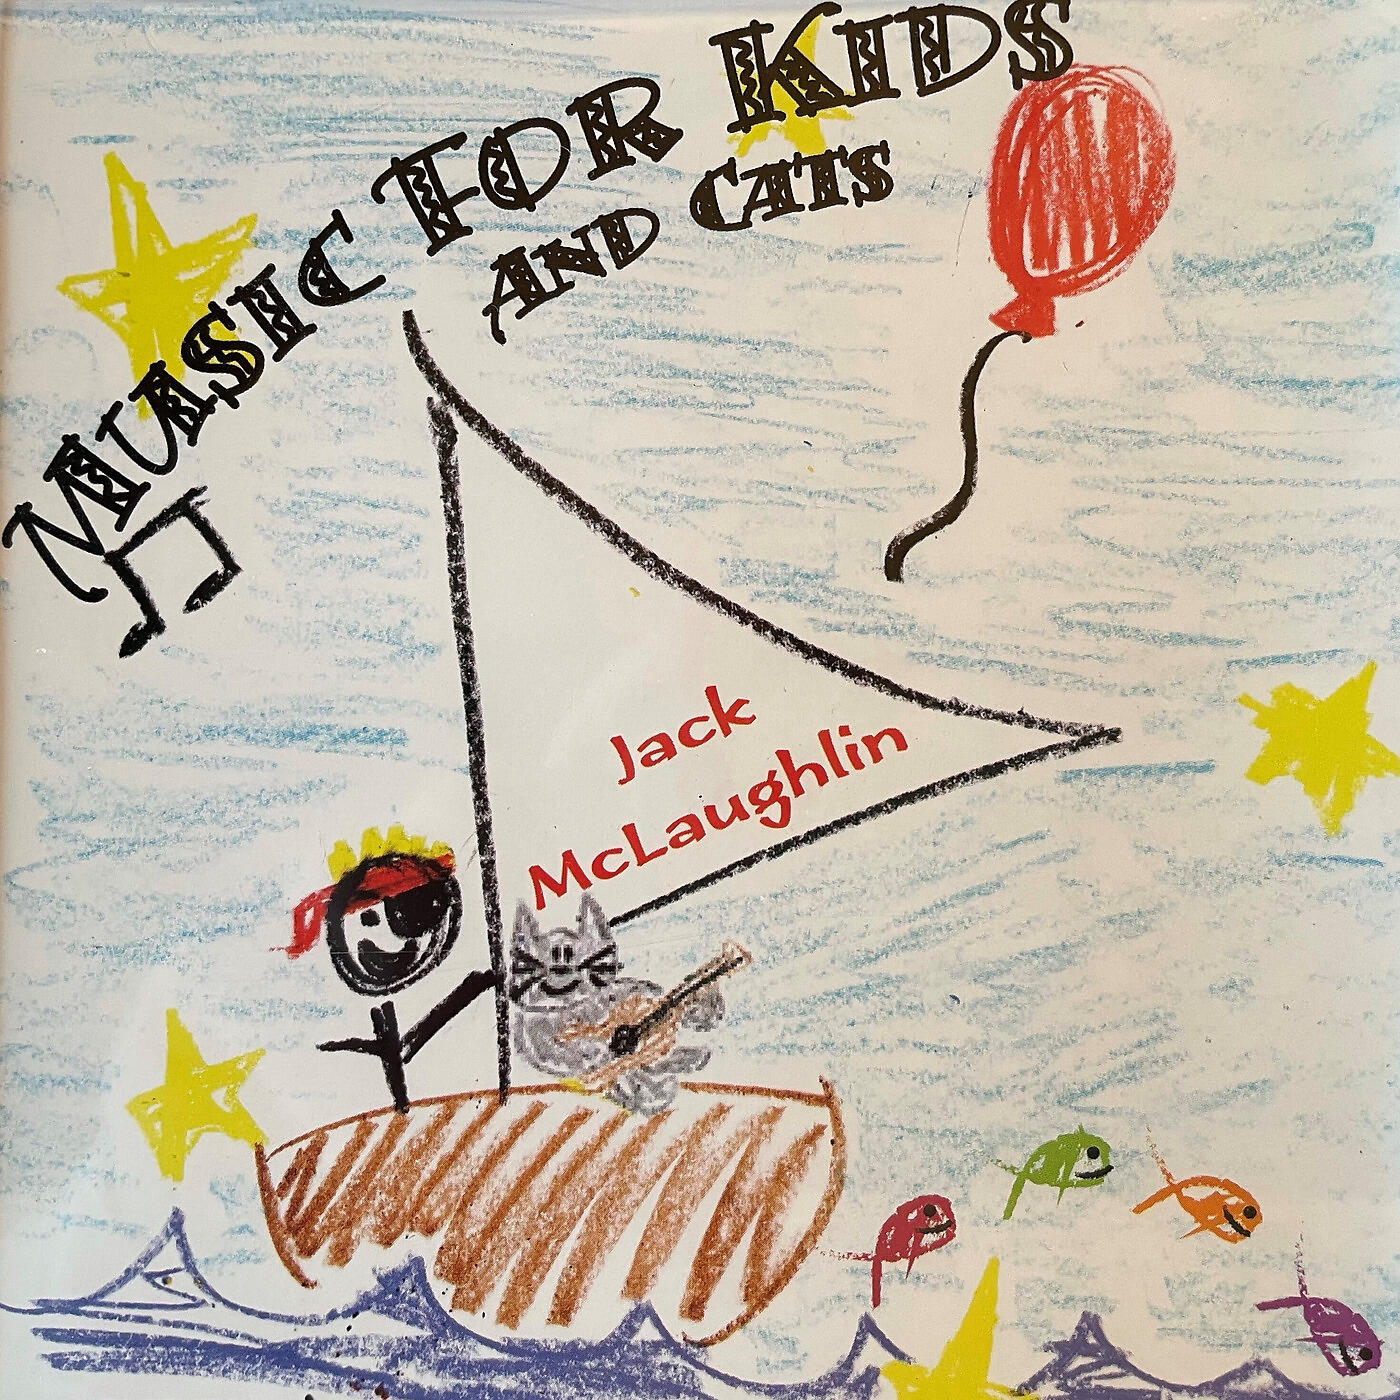 MUSIC FOR KIDS
AND CATS
Jack
McLaughlin